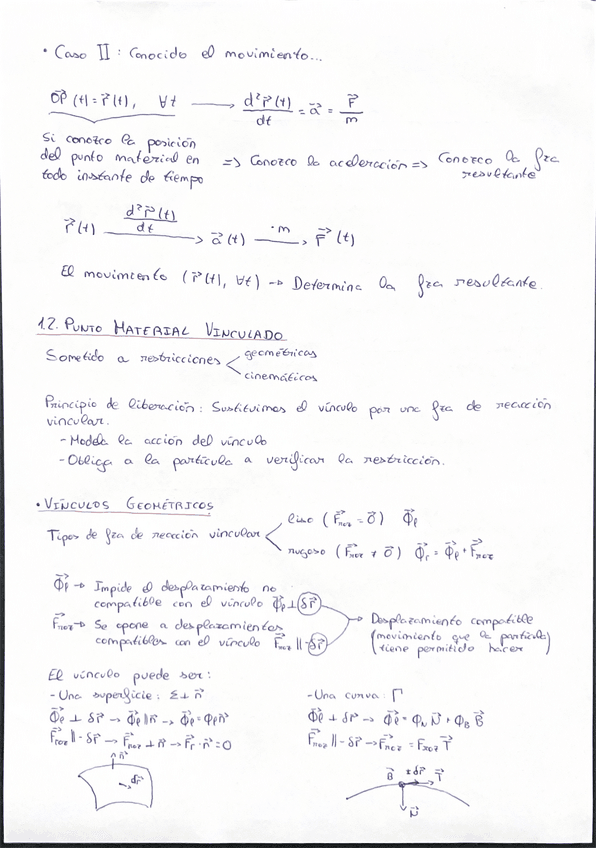 • Caso II : Conocido el movimiento...
OP⃗(t) = r⃗(t), ∀t ⟶ d²r⃗(t)/dt = a⃗ = F⃗/m
Si conozco la posición
del punto material en
todo instante de tiempo
=> Conozco la aceleración => Conozco la fza
resultante
r⃗(t) —d²r⃗(t)/dt→ a⃗(t) —·m→ F⃗(t)
El movimiento (r⃗(t), ∀t) → Determina la fza resultante.
1.2. PUNTO MATERIAL VINCULADO
Sometido a restricciones < geométricas
cinemáticas
Principio de liberación: Sustituimos el vínculo por una fza de reacción
vincular.
- Modela la acción del vínculo
- Obliga a la partícula a verificar la restricción.
• VÍNCULOS GEOMÉTRICOS
Tipos de fza de reacción vincular < liso (F⃗roz = 0⃗) Φ⃗ℓ
rugoso (F⃗roz ≠ 0⃗) Φ⃗r = Φ⃗ℓ + F⃗roz
Φ⃗ℓ → Impide el desplazamiento no
compatible con el vínculo Φ⃗ℓ ⊥ δr⃗
F⃗roz → Se opone a desplazamientos
compatibles con el vínculo F⃗roz ∥ -δr⃗
Desplazamiento compatible
(movimiento que la partícula
tiene permitido hacer)
El vínculo puede ser:
- Una superficie: Σ ⊥ n⃗
Φ⃗ℓ ⊥ δr⃗ → Φ⃗ℓ ∥ n⃗ → Φ⃗ℓ = Φℓ n⃗
F⃗roz ∥ -δr⃗ → F⃗roz ⊥ n⃗ → F⃗r · n⃗ = 0
n⃗
dr⃗
- Una curva: Γ
Φ⃗ℓ ⊥ δr⃗ → Φ⃗ℓ = ΦN N⃗ + ΦB B⃗
F⃗roz ∥ -δr⃗ → F⃗roz = Froz T⃗
B⃗ ±dr⃗ T⃗
N⃗